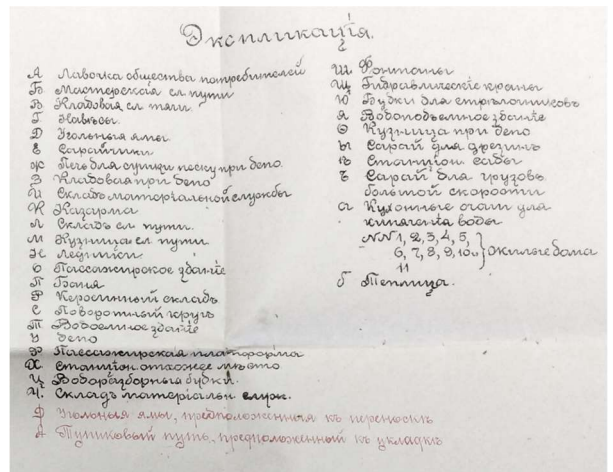 Экспликація.
А Лавочка общества потребителей
Б Мастерская сл. пути
В Кладовая сл. тяги.
Г Навѣсы.
Д Угольныя ямы.
Е Сарайчики
Ж Печь для сушки песку при депо.
З Кладовая при депо
И Складъ матеріальной службы
К Казарма
Л Складъ сл. пути.
М Кузница сл. пути
Н Ледники.
О Пассажирское зданіе
П Баня
Р Керосинный складъ
С Поворотный кругъ
Т Водоемное зданіе
У Депо
Ф Пассажирская платформа
Х Станціон. отхожее мѣсто
Ц Водоразборныя будки.
Ч. Складъ матеріальн. служ.
Ф Угольныя ямы, предположенныя къ переноскѣ
А Тупиковый путь, предположенный къ укладкѣ
Ш Фонтаны
Щ Гидравлическіе краны
Ю Будки для стрѣлочниковъ
Я Водоподъемное зданіе
Ѳ Кузница при депо
Ы Сарай для дрезинъ
Ѣ Станціон. сады
Ъ Сарай для грузовъ
большой скорости
а Кухонные очаги для
кипяченія воды
NN 1, 2, 3, 4, 5,
6, 7, 8, 9, 10 и Жилые дома
11
б Теплица.